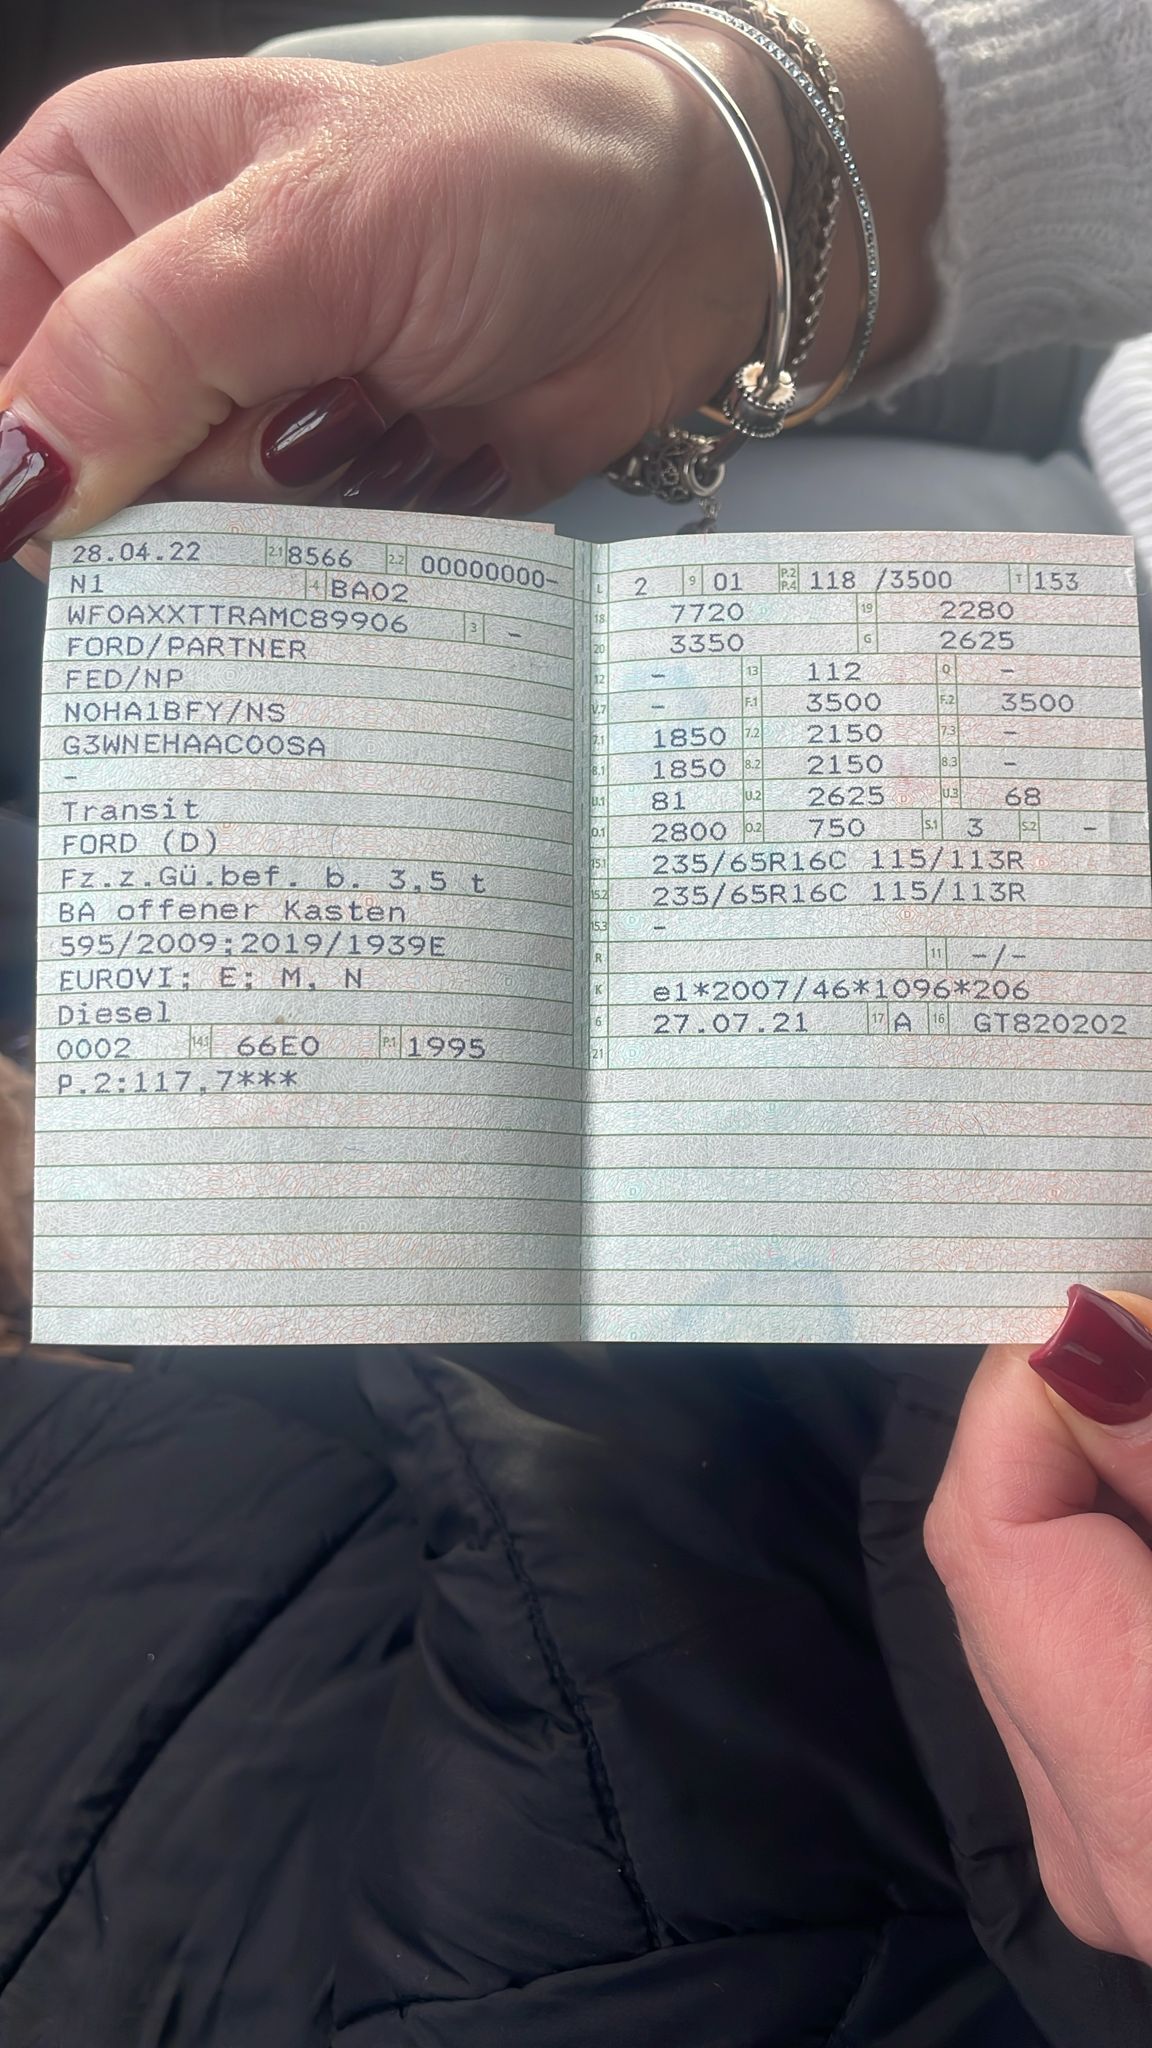 28.04.22 2.1 8566 2.2 00000000-
N1 4 BA02
WF0AXXTTRAMC89906 3 -
FORD/PARTNER
FED/NP
N0HA1BFY/NS
G3WNEHAAC00SA
-
Transit
FORD (D)
Fz.z.Gü.bef. b. 3,5 t
BA offener Kasten
595/2009;2019/1939E
EUROVI; E; M, N
Diesel
0002 14.1 66E0 P.1 1995
P.2:117,7***
L 2 9 01 P.2 P.4 118 /3500 T 153
18 7720 19 2280
20 3350 G 2625
12 - 13 112 Q -
V.7 - F.1 3500 F.2 3500
7.1 1850 7.2 2150 7.3 -
8.1 1850 8.2 2150 8.3 -
U.1 81 U.2 2625 U.3 68
O.1 2800 O.2 750 S.1 3 S.2 -
15.1 235/65R16C 115/113R
15.2 235/65R16C 115/113R
15.3 -
R 11 -/-
K e1*2007/46*1096*206
6 27.07.21 17 A 16 GT820202
21